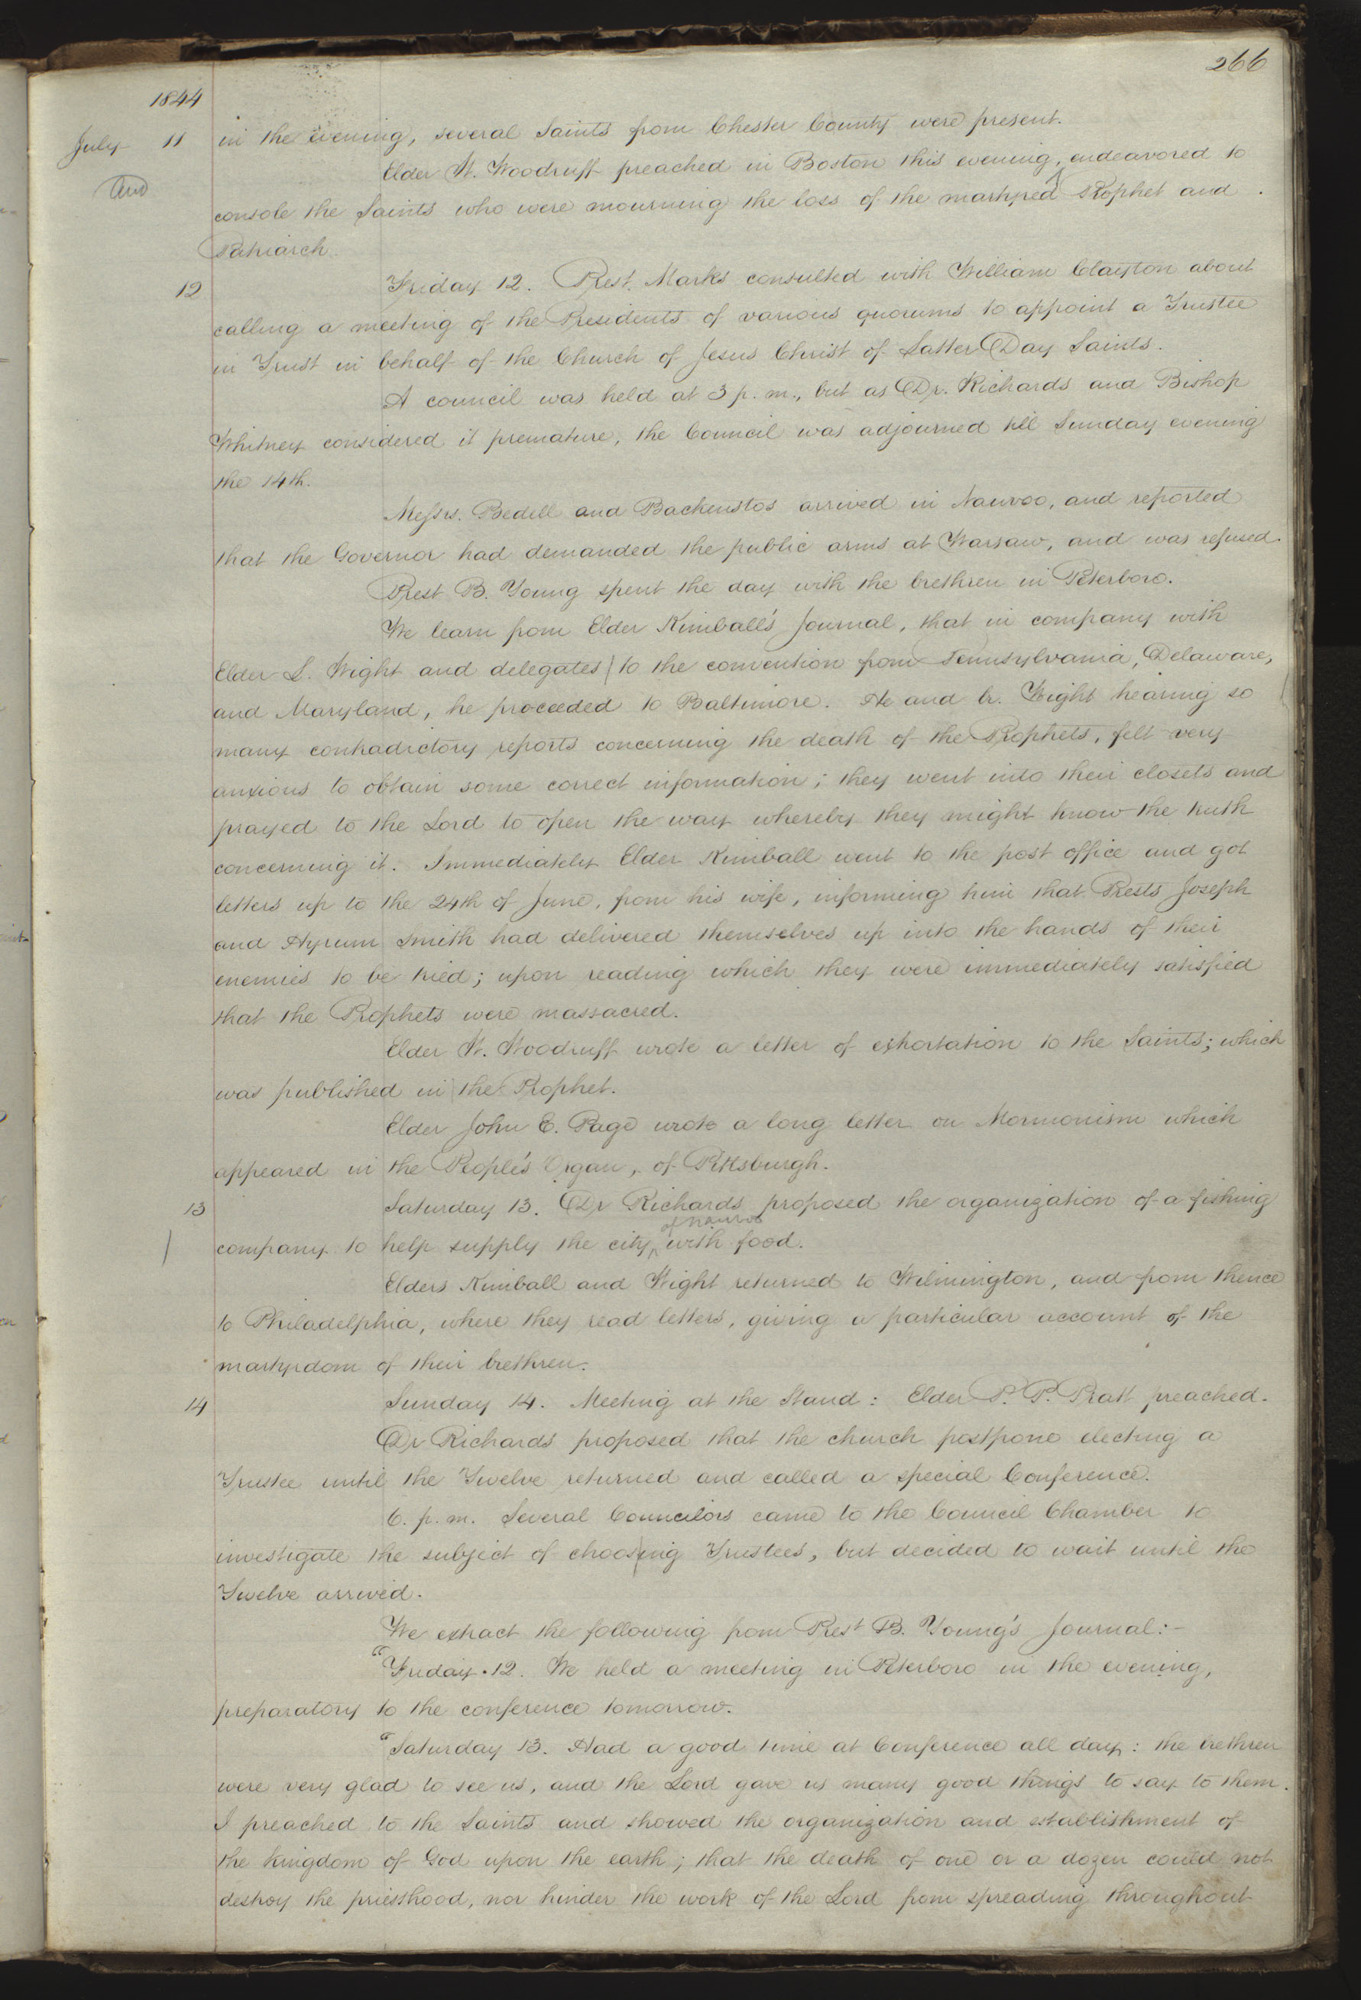 266
1844
July 11 in the evening, several Saints from Chester County were present.
Elder W. Woodruff preached in Boston this evening, endeavored to
and
console the Saints who were mourning the loss of the martyred Prophet and
Patriarch.
12 Friday 12. Prest. Marks consulted with William Clayton about
calling a meeting of the Presidents of various quorums to appoint a Trustee
in Trust in behalf of the Church of Jesus Christ of Latter Day Saints.
A council was held at 3 p. m., but as Dr. Richards and Bishop
Whitney considered it premature, the Council was adjourned till Sunday evening
the 14th.
Messrs. Bedell and Backenstos arrived in Nauvoo, and reported
that the Governor had demanded the public arms at Warsaw, and was refused.
Prest B. Young spent the day with the brethren in Peterboro.
We learn from Elder Kimball's Journal, that in company with
Elder L. Wight and delegates to the convention from Pennsylvania, Delaware,
and Maryland, he proceeded to Baltimore. He and br. Wight hearing so
many contradictory reports concerning the death of the Prophets, felt very
anxious to obtain some correct information; they went into their closets and
prayed to the Lord to open the way whereby they might know the truth
concerning it. Immediately Elder Kimball went to the post office and got
letters up to the 24th of June, from his wife, informing him that Prests Joseph
and Hyrum Smith had delivered themselves up into the hands of their
enemies to be tried; upon reading which they were immediately satisfied
that the Prophets were massacred.
Elder W. Woodruff wrote a letter of exhortation to the Saints; which
was published in the Prophet.
Elder John E. Page wrote a long letter on Mormonism which
appeared in the People's Organ, of Pittsburgh.
13 Saturday 13. Dr Richards proposed the organization of a fishing
of Nauvoo
company to help supply the city with food.
Elders Kimball and Wight returned to Wilmington, and from thence
to Philadelphia, where they read letters, giving a particular account of the
martyrdom of their brethren.
14 Sunday 14. Meeting at the Stand: Elder P. P. Pratt preached.
Dr Richards proposed that the church postpone electing a
Trustee until the Twelve returned and called a special Conference.
6. p. m. Several Councilors came to the Council Chamber to
investigate the subject of choosing Trustees, but decided to wait until the
Twelve arrived.
We extract the following from Prest B. Young's Journal:-
"Friday 12. We held a meeting in Peterboro in the evening,
preparatory to the conference tomorrow.
"Saturday 13. Had a good time at Conference all day: the brethren
were very glad to see us, and the Lord gave us many good things to say to them.
I preached to the Saints and showed the organization and establishment of
the kingdom of God upon the earth; that the death of one or a dozen could not
destroy the priesthood, nor hinder the work of the Lord from spreading throughout